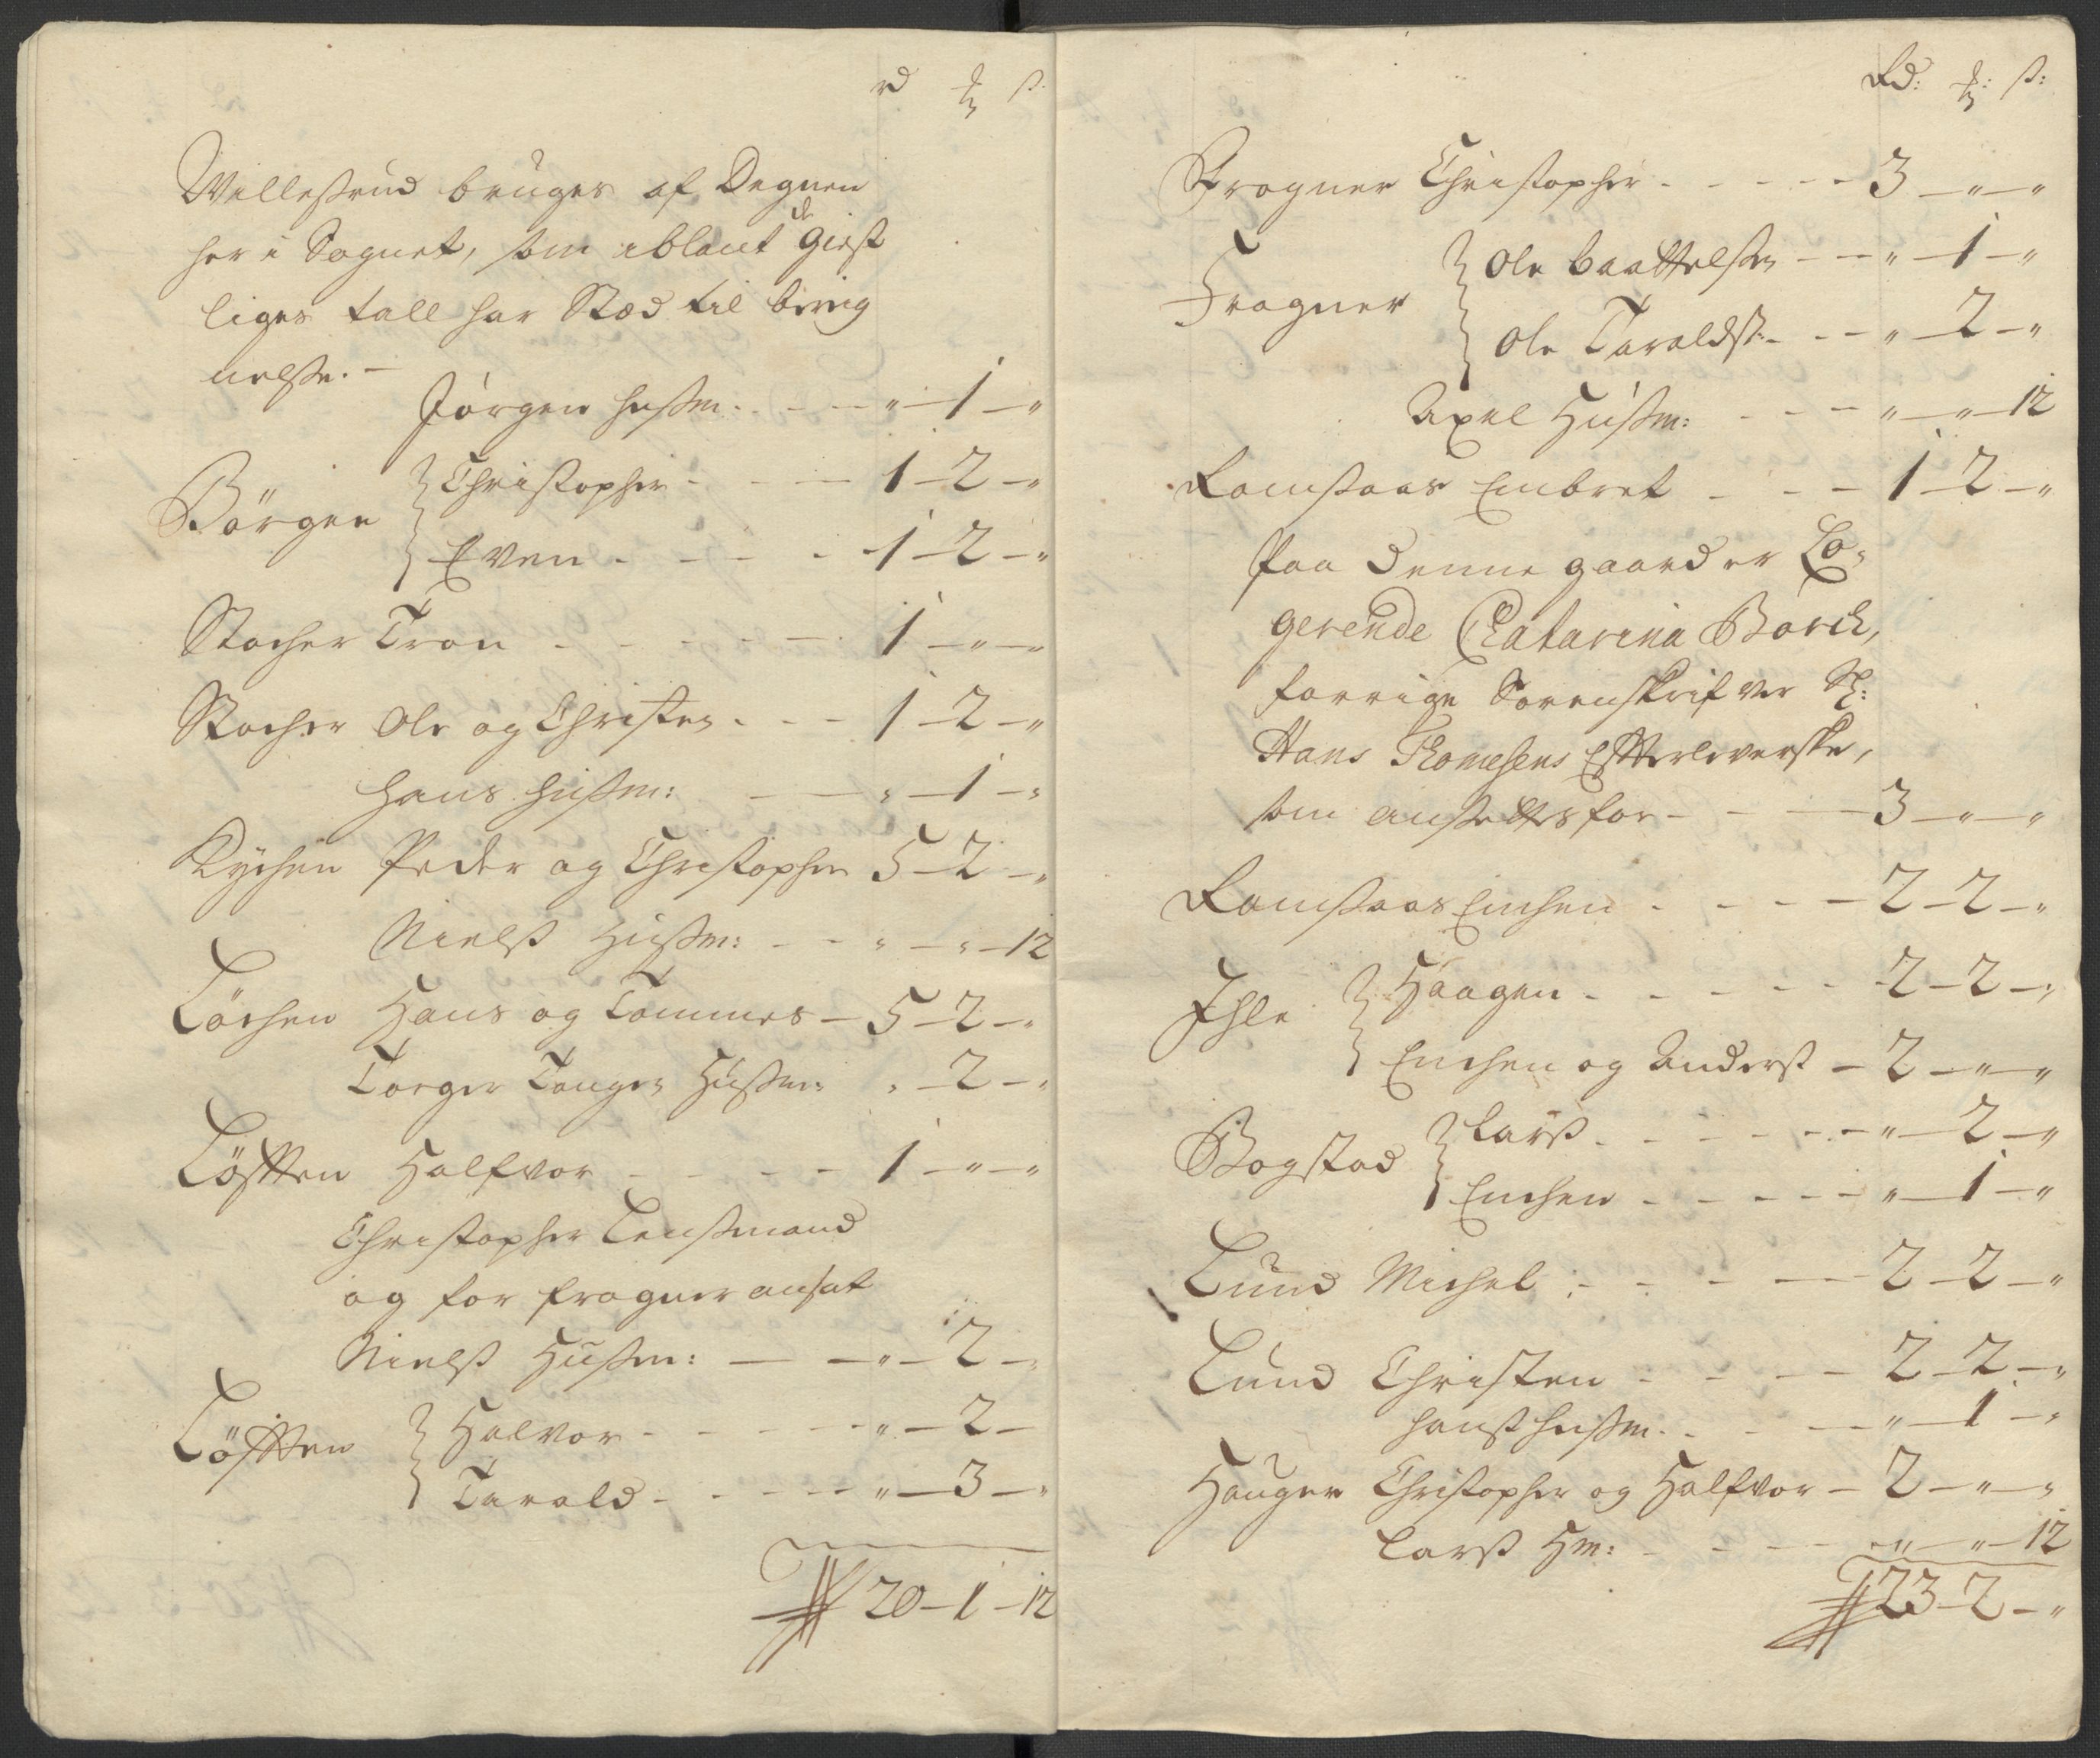 rd ß
Willestrud bruges af Degnen
her i Sognet, som iblant de Giest
liges tall har Stæd til berig
nelße. -
Jörgen hußm: - - - " - 1 - "
Börgen { Christopher - - - 1 - 2 - "
Even - - - - 1 - 2 - "
Stocher Tron - - - - 1 - " - "
Stocher Ole og Christen - - - 1 - 2 - "
Hans hußm: - - " - 1 - "
Kÿchen Peder og Christopher 5 - 2 - "
Nielß Hußm: - - " - " - 12
Löchen Hans og Tommes - 5 - 2 - "
Torger Tangen Hußm: " - 2 - "
Löcken Halfvor - - - - 1 - " - "
Christopher Lenßmand
og for frogner ansat
Nielß Hußm: - - " - 2 - "
Löcken { Halvor - - - - " - 2 -
Tarald - - - - " - 3 - "
20 - 1 - 12
Rd: ß:
Frogner Christopher - - - - - 3 - " - "
Frogner { Ole - - " - 1 - "
Ole Taraldß: - - - " - 2 - "
Axel Hußm: - - - " - " - 12
Ramstaas Embret - - - 1 - 2 - "
Paa denne gaard er Lo-
gerende Chatarina Borch,
forrige Sorenskrifver Sl:
Hans Thomesens Efterleverske,
som ansettes for - - - 3 - " - "
Ramstaas Enchen - - - - 2 - 2 - "
Ihle { Haagen - - - - - 2 - 2 - "
Enchen og Anderß - 2 - " - "
Bogstad { Larß - - - - - - " - 2 - "
Enchen - - - - - " - 1 - "
Lund Michel : - - - - 2 - 2 - "
Lund Christen - - - - 2 - 2 - "
hanß hußm - - - " - 1 - "
Hauger Christopher og Halfvor - 2 - " - "
Larß Hm: - - - - " - " - 12
23 - 2 - "